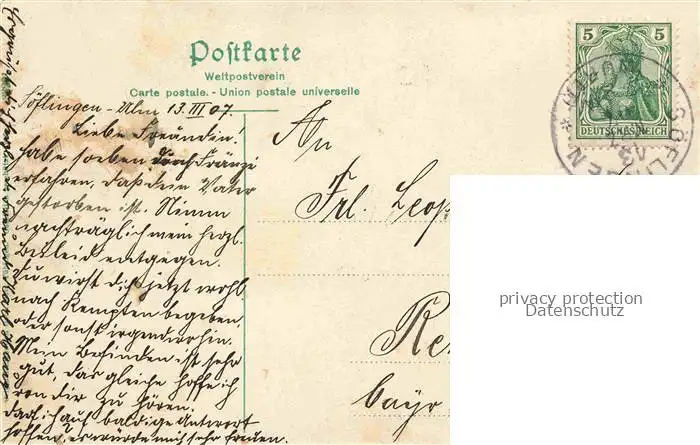 Postkarte
Weltpostverein
Carte postale. - Union postale universelle
5 5
DEUTSCHES REICH
SÖFLINGEN
Söflingen-Ulm 13.III 07.
Liebe Freundin!
habe soeben durch Fränzi
erfahren, daß dein Vater
gestorben ist. Nimm
nachträglich mein herzl.
Beileid entgegen.
Du wirst dich jetzt wohl
nach Kempten begeben
oder sonst irgendwohin.
Mein Befinden ist sehr
gut, das gleiche hoffe ich
von dir zu hören.
auf baldige Antwort
hoffen, es würde mich sehr freuen.
An
Frl. Leop
Ke
bayr
privacy protection
Datenschutz